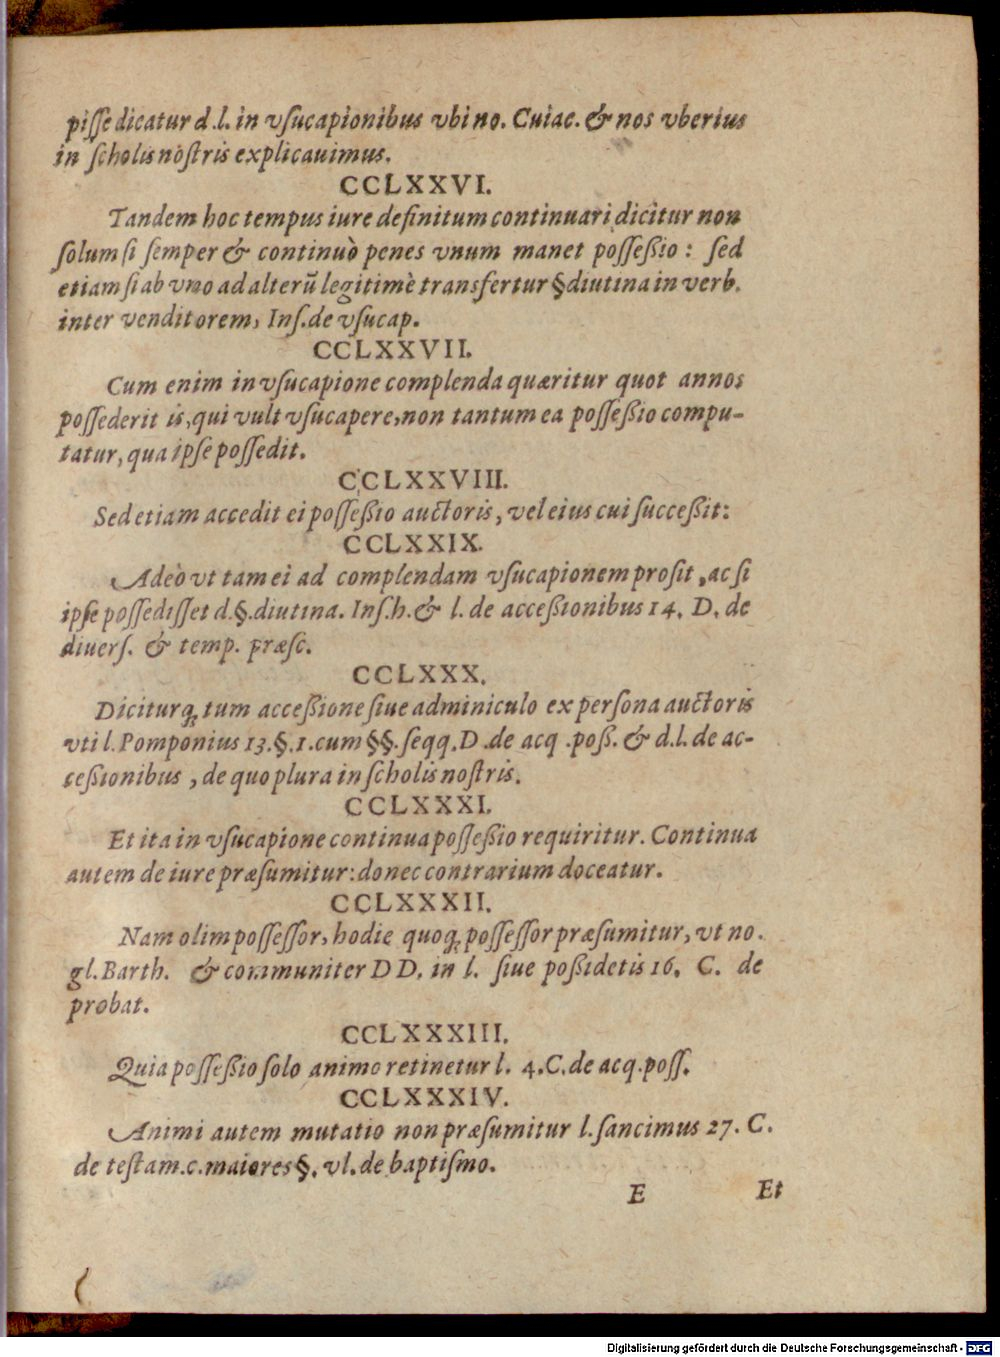 piſſe dicatur d.l. in vſucapionibus vbi no. Cuiac. & nos vberius
in ſcholis noſtris explicauimus.
CCLXXVI.
Tandem hoc tempus iure definitum continuari dicitur non
ſolum ſi ſemper & continuò penes vnum manet poſſeßio: ſed
etiam ſi ab vno ad alterũ legitimè transfertur §diutina in verb.
inter venditorem, Inſ. de vſucap.
CCLXXVII.
Cum enim in vſucapione complenda quæritur quot annos
poſſederit is, qui vult vſucapere, non tantum ea poſſeßio compu-
tatur, qua ipſe poſſedit.
CCLXXVIII.
Sed etiam accedit ei poſſeßio auctoris, vel eius cui ſucceßit:
CCLXXIX.
Adeò vt tam ei ad complendam vſucapionem proſit, ac ſi
ipſe poſſediſſet d.§.diutina. Inſ.h. & l. de acceßionibus 14. D. de
diuerſ. & temp. præſc.
CCLXXX.
Diciturq; tum acceßione ſiue adminiculo ex perſona auctoris
vti l. Pomponius 13.§.1.cum §§.ſeqq. D.de acq.poß. & d.l. de ac-
ceßionibus, de quo plura in ſcholis noſtris.
CCLXXXI.
Et ita in vſucapione continua poſſeßio requiritur. Continua
autem de iure præſumitur: donec contrarium doceatur.
CCLXXXII.
Nam olim poſſeſſor, hodie quoq; poſſeſſor præſumitur, vt no.
gl. Barth. & communiter DD. in l. ſiue poßidetis 16. C. de
probat.
CCLXXXIII.
Quia poſſeßio ſolo animo retinetur l. 4.C.de acq.poſſ.
CCLXXXIV.
Animi autem mutatio non præſumitur l.ſancimus 27. C.
de teſtam.c.maiores §. vl. de baptiſmo.
E Et
Digitalisierung gefördert durch die Deutsche Forschungsgemeinschaft - DFG